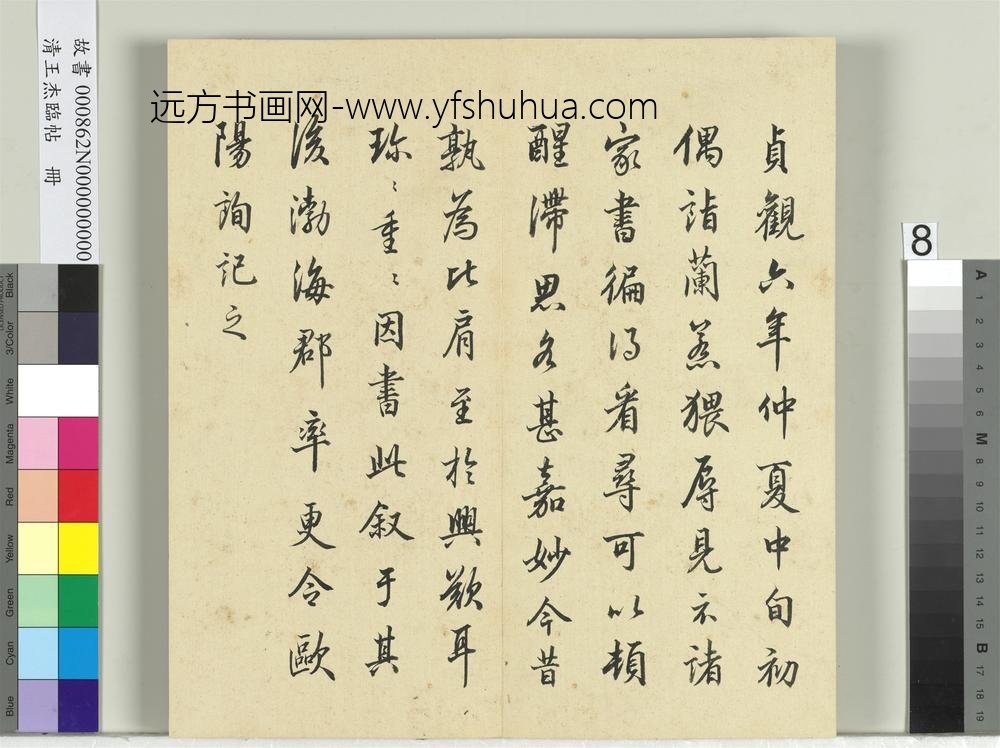 远方书画网-www.yfshuhua.com
貞觀六年仲夏中旬初
偶詣蘭若猥辱見示諸
家書徧得看尋可以頓
醒滯思甚嘉妙今昔
孰為比肩至於興歎耳
珎〻重〻因書此叙于其
後渤海郡率更令歐
陽詢記之
故書 000862N000000000
清王杰臨帖 冊
8
Black
3/Color
White
Magenta
Red
Yellow
Green
Cyan
Blue
A
1
2
3
4
5
6
M
8
9
10
11
12
13
14
15
B
17
18
19